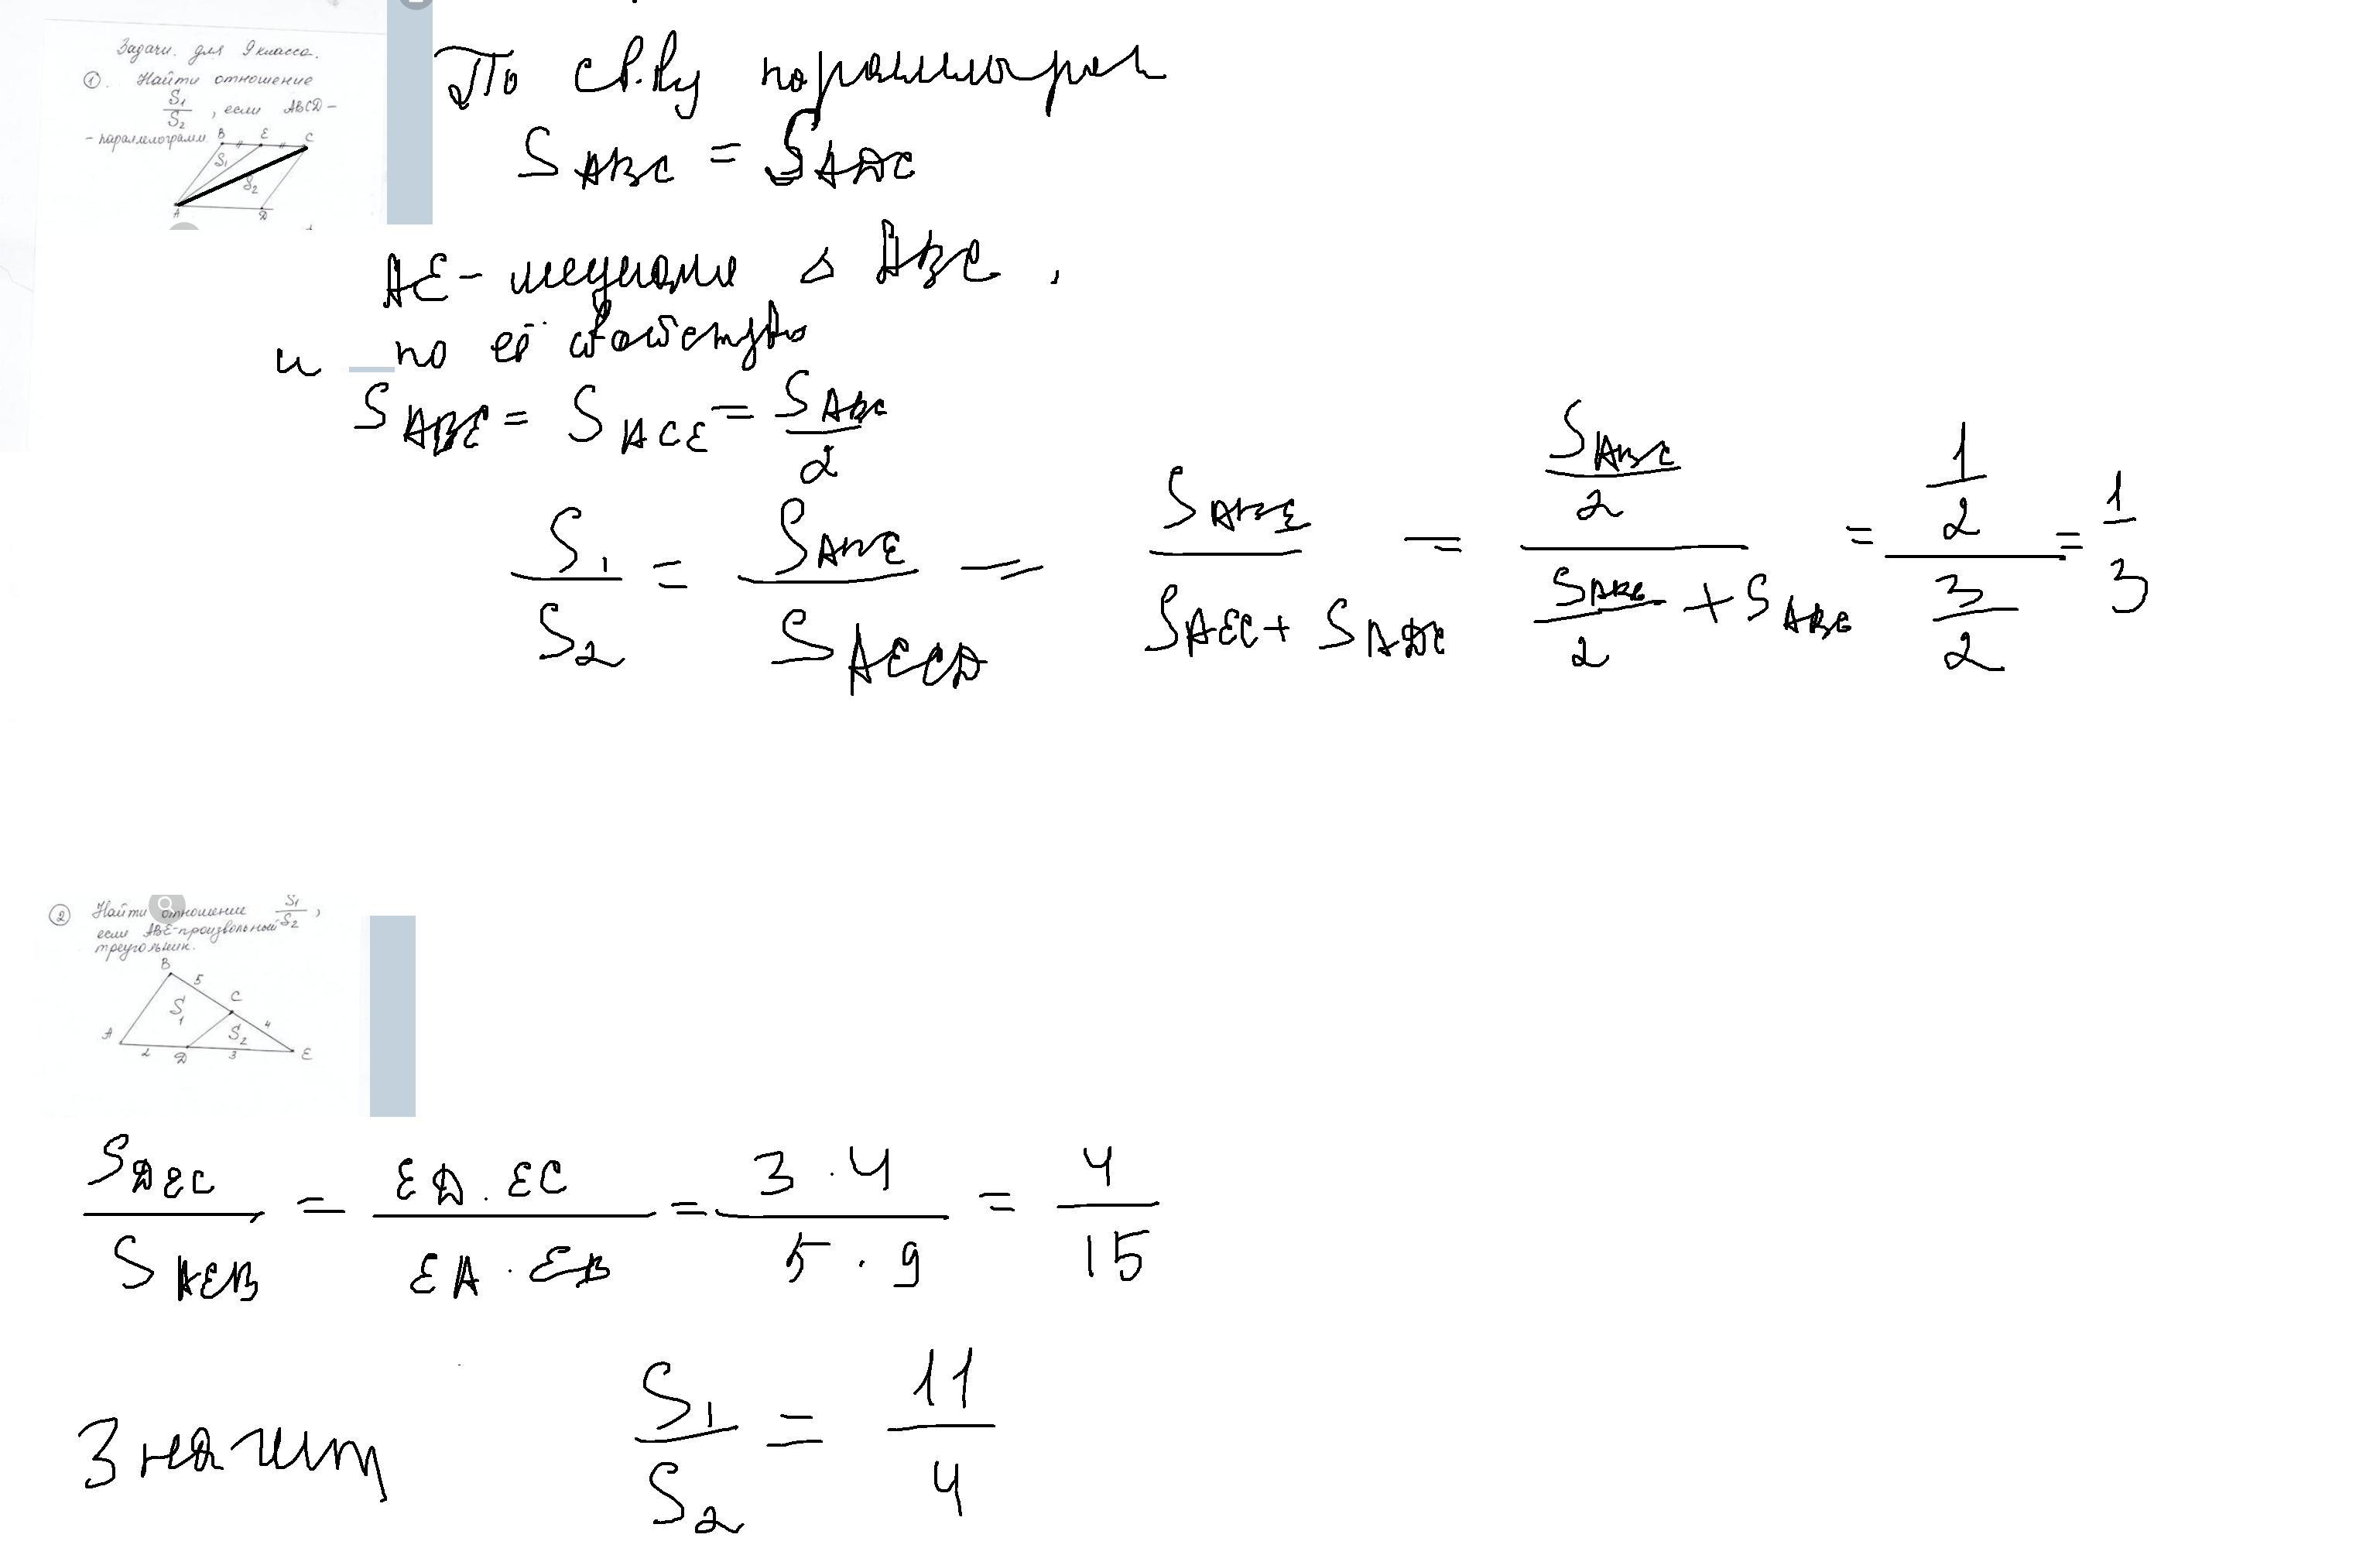 Задачи для 9 класса.
① Найти отношение
S1/S2, если ABCD -
- параллелограмм.
B E C
S1
S2
A D
По св.ву параллелограм
S ABC = S ADC
AE - медиана △ ABC,
и по её свойству
S ABE = S ACE = S ABC/2
S1/S2 = S ABE/S AECD = S ABE/(S AEC + S ADC) = (S ABC/2)/(S ABC/2 + S ABC) = (1/2)/(3/2) = 1/3
② Найти отношение S1/S2,
если ABE - произвольный
треугольник.
B
5
C
S1
4
S2
A 2 D 3 E
S DEC/S AEB = ED · EC/EA · EB = 3 · 4/5 · 9 = 4/15
Значит S1/S2 = 11/4